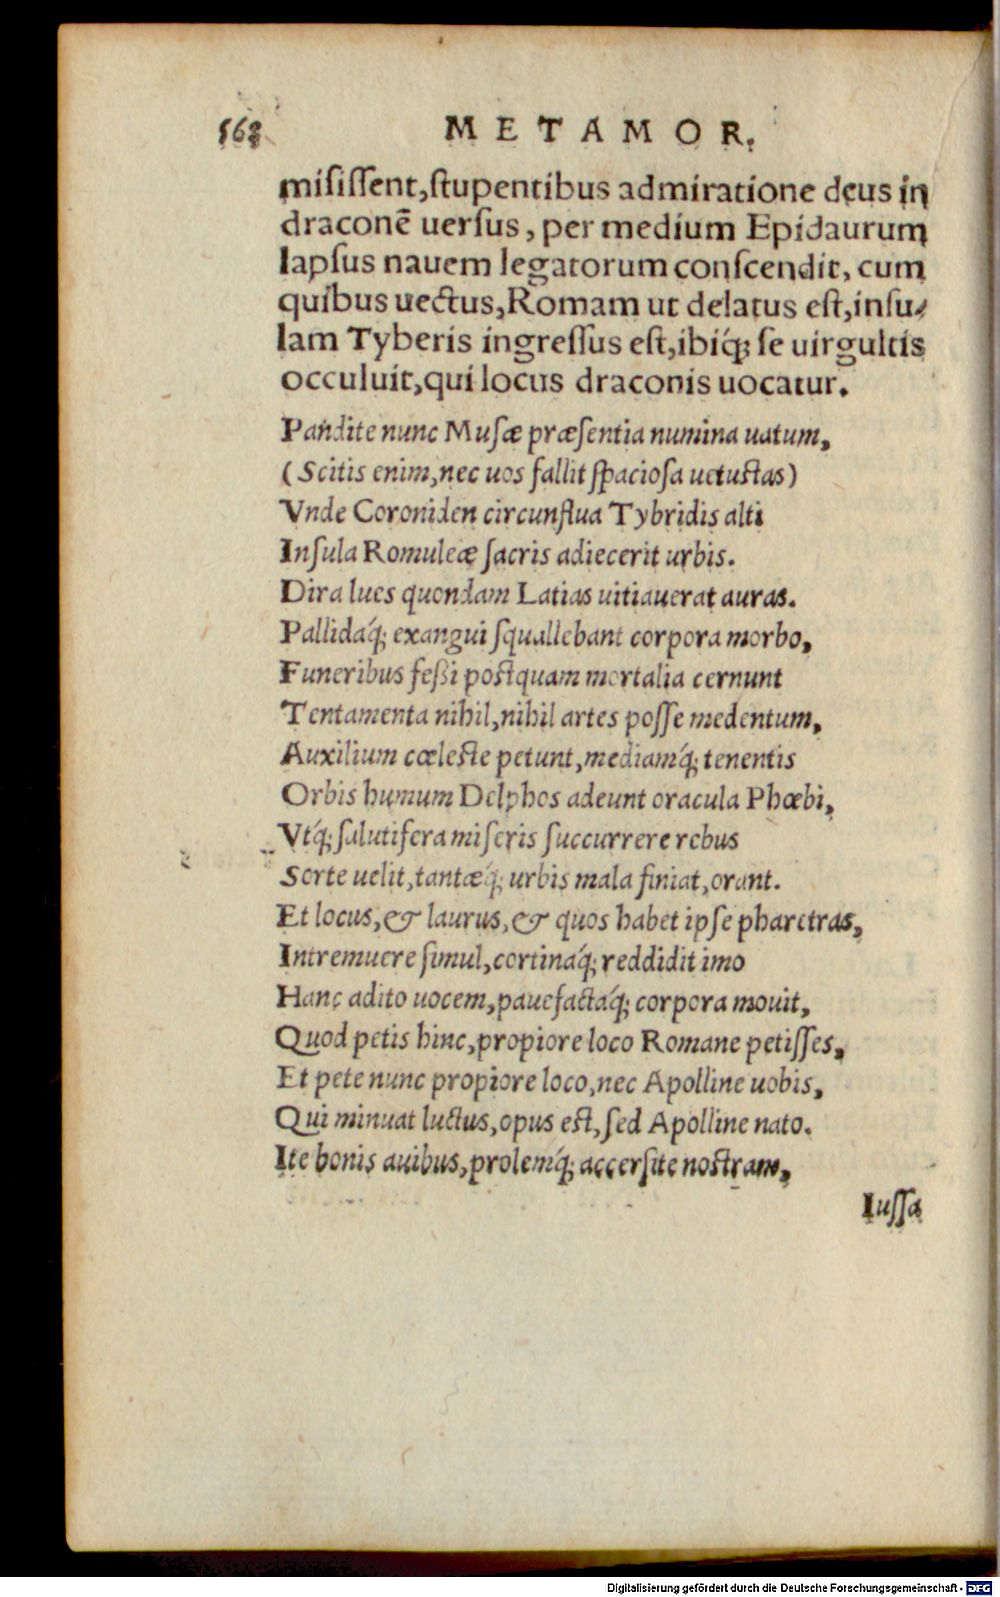 568 METAMOR.
misissent, stupentibus admiratione deus in
draconē uersus, per medium Epidaurum
lapsus nauem legatorum conscendit, cum
quibus uectus, Romam ut delatus est, insu-
lam Tyberis ingressus est, ibiq́; se uirgultis
occuluit, qui locus draconis uocatur.
Pandite nunc Musæ præsentia numina uatum,
(Scitis enim, nec uos fallit spaciosa uetustas)
Vnde Coroniden circunflua Tybridis alti
Insula Romuleæ sacris adiecerit urbis.
Dira lues quondam Latias uitiauerat auras.
Pallidaq́; exangui squallebant corpora morbo,
Funeribus feßi postquam mortalia cernunt
Tentamenta nihil, nihil artes posse medentum,
Auxilium cœleste petunt, mediamq́; tenentis
Orbis humum Delphos adeunt oracula Phœbi,
Vtq́; salutifera miseris succurrere rebus
Sorte uelit, tantæq́; urbis mala finiat, orant.
Et locus, & laurus, & quos habet ipse pharetras,
Intremuere simul, cortinaq́; reddidit imo
Hanc adito uocem, pauefactaq́; corpora mouit,
Quod petis hinc, propiore loco Romane petisses,
Et pete nunc propiore loco, nec Apolline uobis,
Qui minuat luctus, opus est, sed Apolline nato.
Ite bonis auibus, prolemq́; accersite nostram,
Iussa
Digitalisierung gefördert durch die Deutsche Forschungsgemeinschaft - DFG